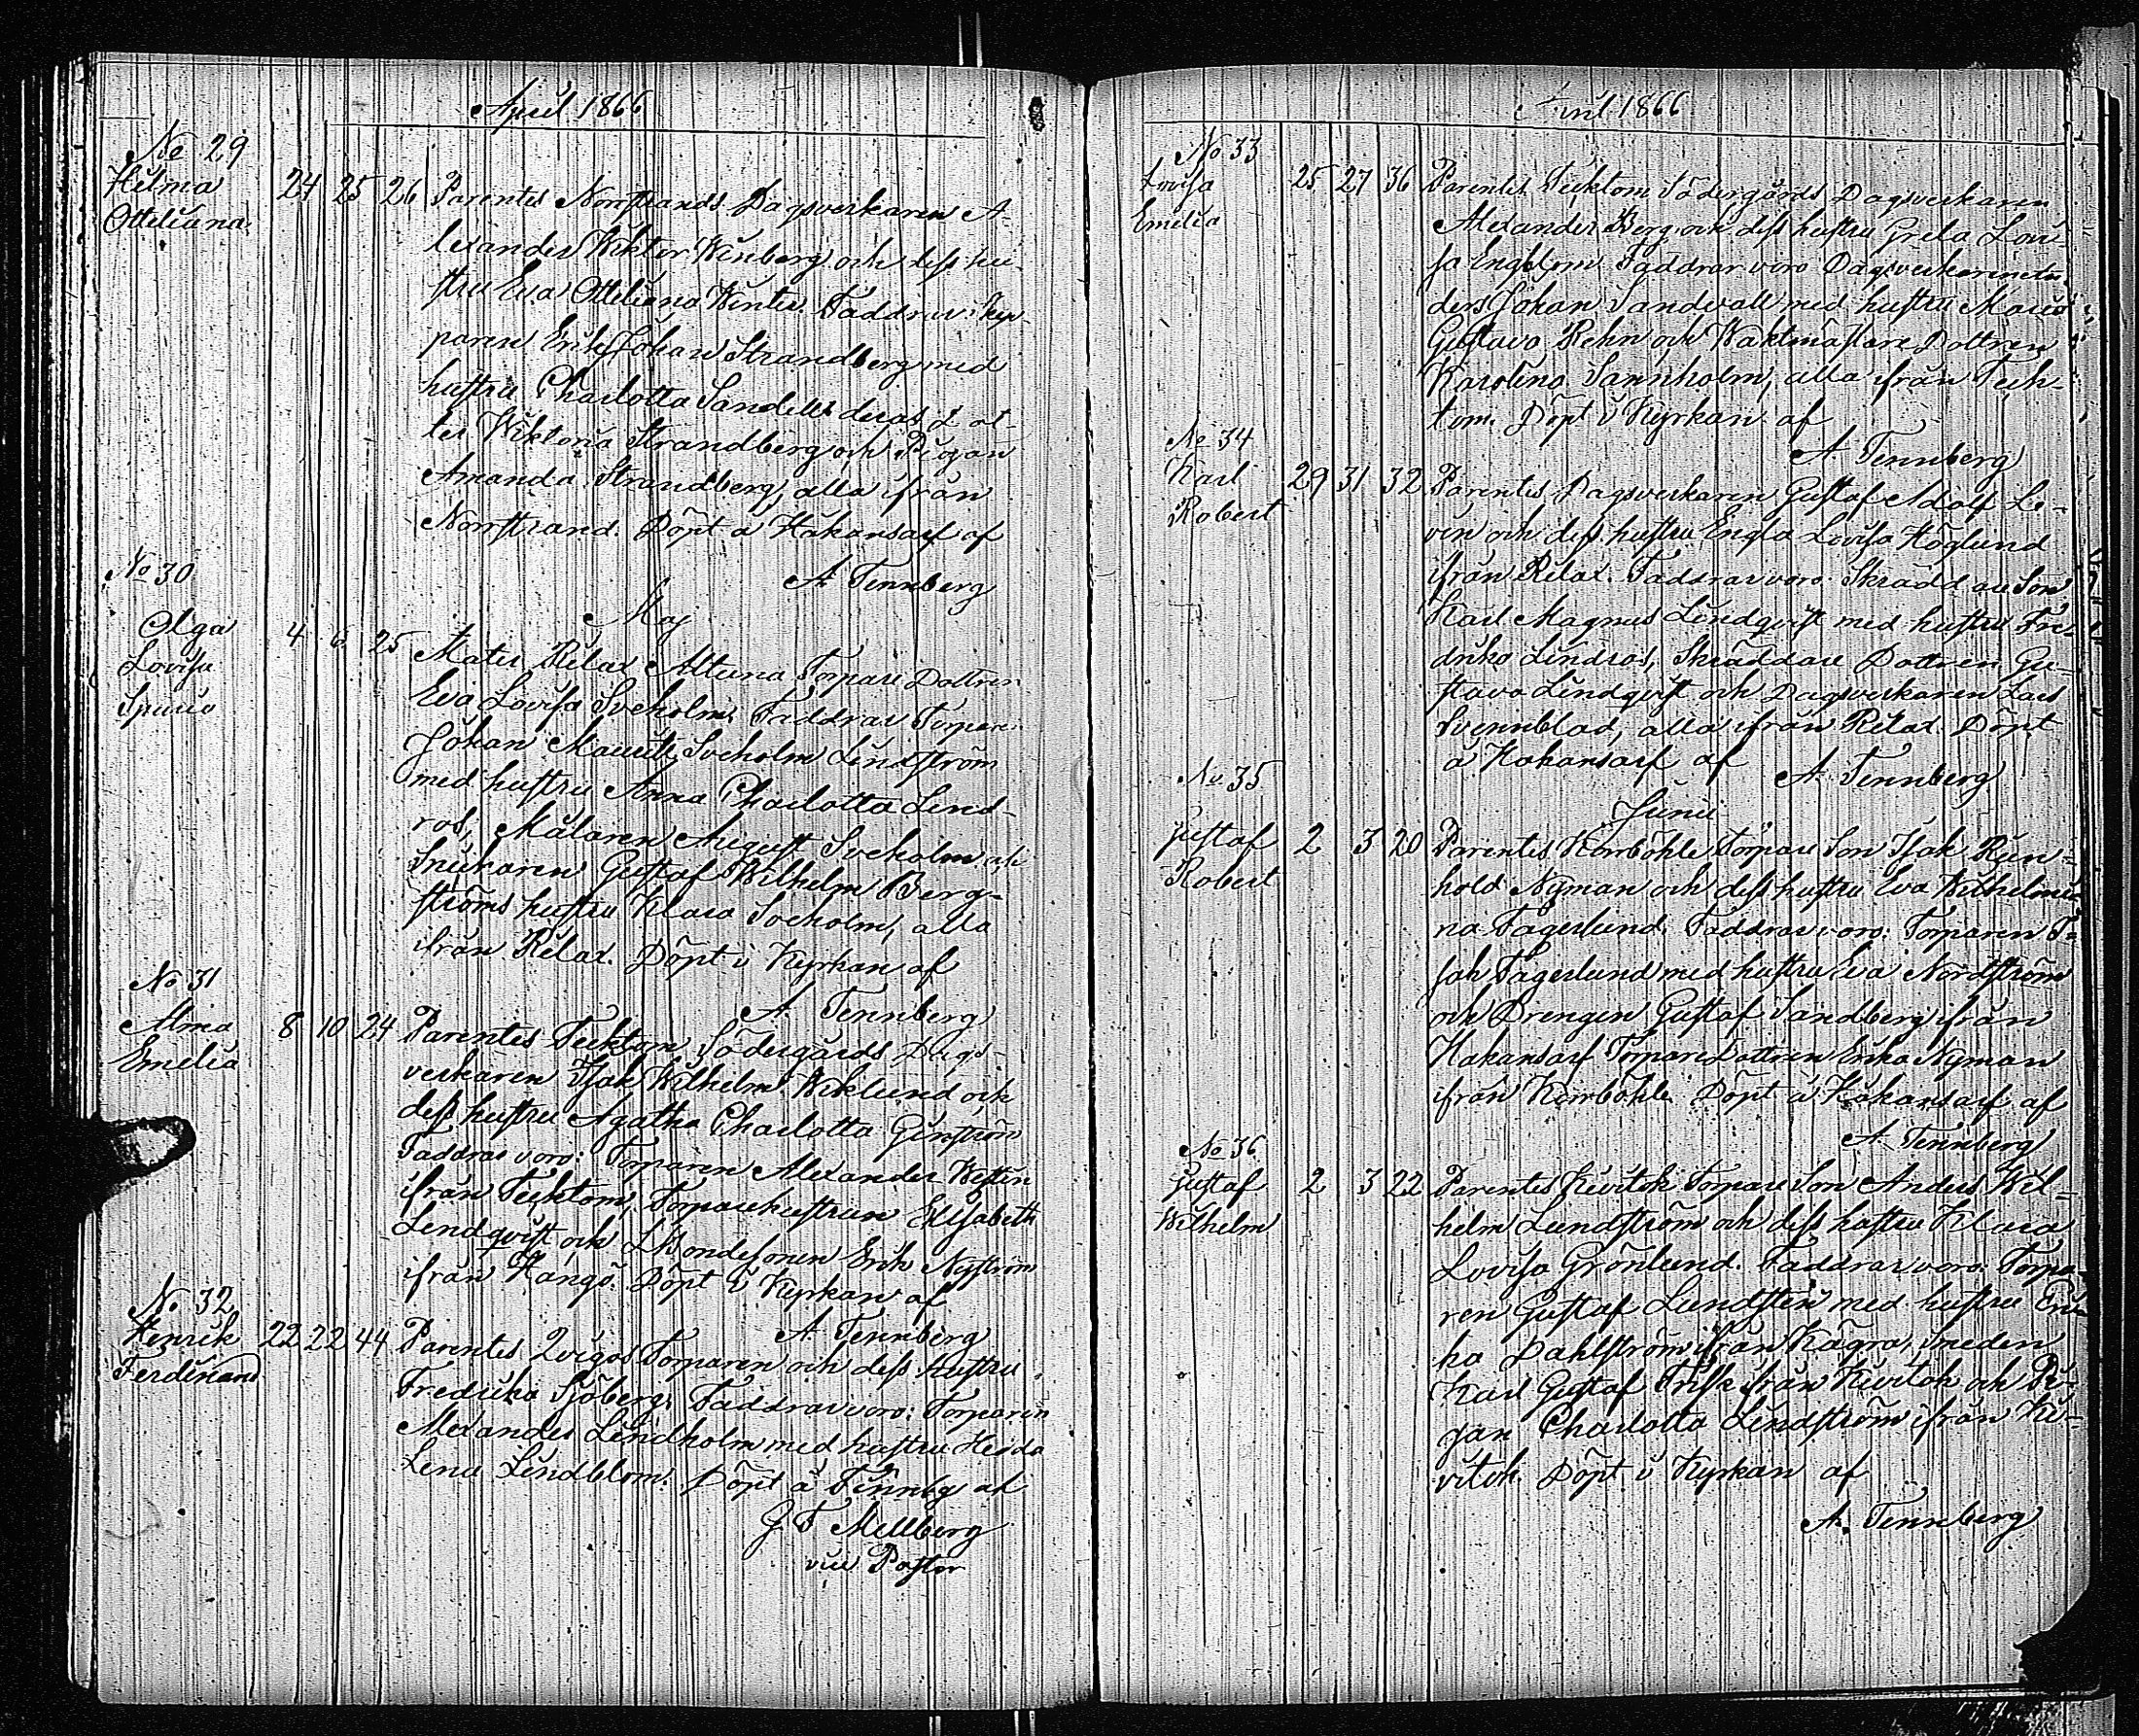 April 1866
No 29
Hilma 24 25 26 Parentes Norrstrands Dagsverkaren A-
Otteliana lexander Wiktor Winberg och dess hu-
stru Eva Otteliana Winter. Faddrar:
paren Erik Johan Strandberg med
hustru Charlotta Sandell deras Dot-
ter Wiktoria Strandberg och Pigan
Amanda Strandberg, alla ifrån
Norrstrand. Döpt å Håkansarf af
A Tennberg
No 30
Maj
Olga 4 6 25 Mater Rilax Altuna Torpare Dottren
Lovisa Eva Lovisa Sveholm. Faddrar Torparen
Spuria Johan Mauritz Sveholm Lindström
med hustru Anna Charlotta Lind-
ros, Målaren August Sveholm och
Snickaren Gustaf Wilhelm Berg-
ströms hustru Klara Sveholm, alla
ifrån Rilax. Döpt i Kyrkan af
A. Tennberg
No 31
Alma 8 10 24 Parentes Täcktom Södergårds Dags-
Emelia verkaren Isak Wilhelm Wiklund och
dess hustru Agatha Charlotta Ginström
Faddrar voro: Torparen Alexander Westen
ifrån Täcktom, Torparehustrun Elisabeth
Lindqvist och Bondesonen Erik Nyström
ifrån Hangö. Döpt i Kyrkan af
A Tennberg
No 32
Henrik 22 22 44 Parentes Torparen och dess hustru
Ferdinand Fredrika Sjöberg. Faddrar voro: Torparen
Alexander Lindholm med hustru Hedda
Lena Lindblom. Döpt å Finnby af
G F Mellberg
vice Pastor
April 1866
No 33
Lovisa 25 27 36 Parentes Täcktom Södergårds Dagsverkaren
Emelia Alexander Berg och dess hustru Greta Lovi-
sa Engblom Faddrar voro Dagsverkaren
Johan Sandvall med hustru Maria
Gustava Rehn och Waktmästare Dottren
Karolina Sannholm, alla ifrån Täck-
tom. Döpt i Kyrkan af
A Tennberg
No 34
Karl 29 31 32 Parentes Dagsverkaren Gustaf Adolf Le-
Robert vin och dess hustru Engla Lovisa Höglund
ifrån Rilax. Faddrar voro: Skräddare Son
Karl Magnus Lindqvist med hustru Fre-
drika Lindros, Skräddare Dottren Gu-
stava Lindqvist och Dagsverkaren Lars
Svennblad, alla ifrån Rilax. Döpt
å Håkansarf af A. Tennberg
No 35
Junii
Gustaf 2 3 20 Parentes Körrböhle Torpare Son Isak Rein-
Robert hold Nyman och dess hustru Eva Wilhelmi-
na Fagerlund. Faddrar voro: Torparen I-
sak Fagerlund med hustru Eva Nordström
och Drengen Gustaf Sandberg ifrån
Håkansarf Torpare Dottren Erika Nyman
ifrån Körrböhle. Döpt å Håkansarf af
A. Tennberg
No 36
Gustaf 2 3 22 Parentes Kivitok Torpare Son Anders Wil-
Wilhelm helm Lundström och dess hustru Klara
Lovisa Grönlund. Faddrar voro: Torpa-
ren Gustaf Lundsten med hustru Eri-
ka Dahlström ifrån Kägra, Smeden
Karl Gustaf Frisk ifrån Kivitok och Pi-
gan Charlotta Lindström ifrån Ki-
vitok. Döpt i Kyrkan af
A. Tennberg